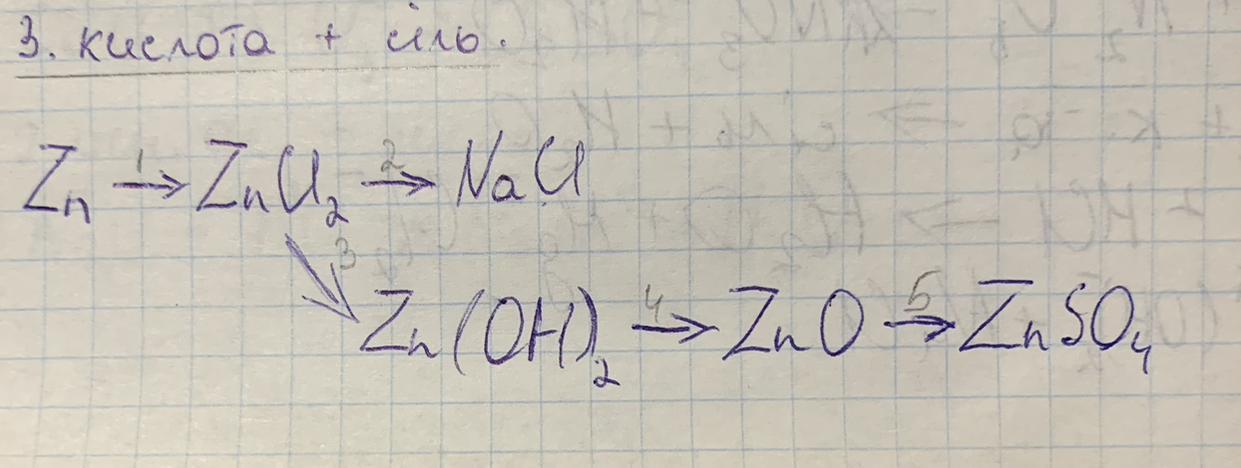 3. кислота + сіль.
Zn 1→ ZnCl₂ 2→ NaCl
3
Zn(OH)₂ 4→ ZnO 5→ ZnSO₄